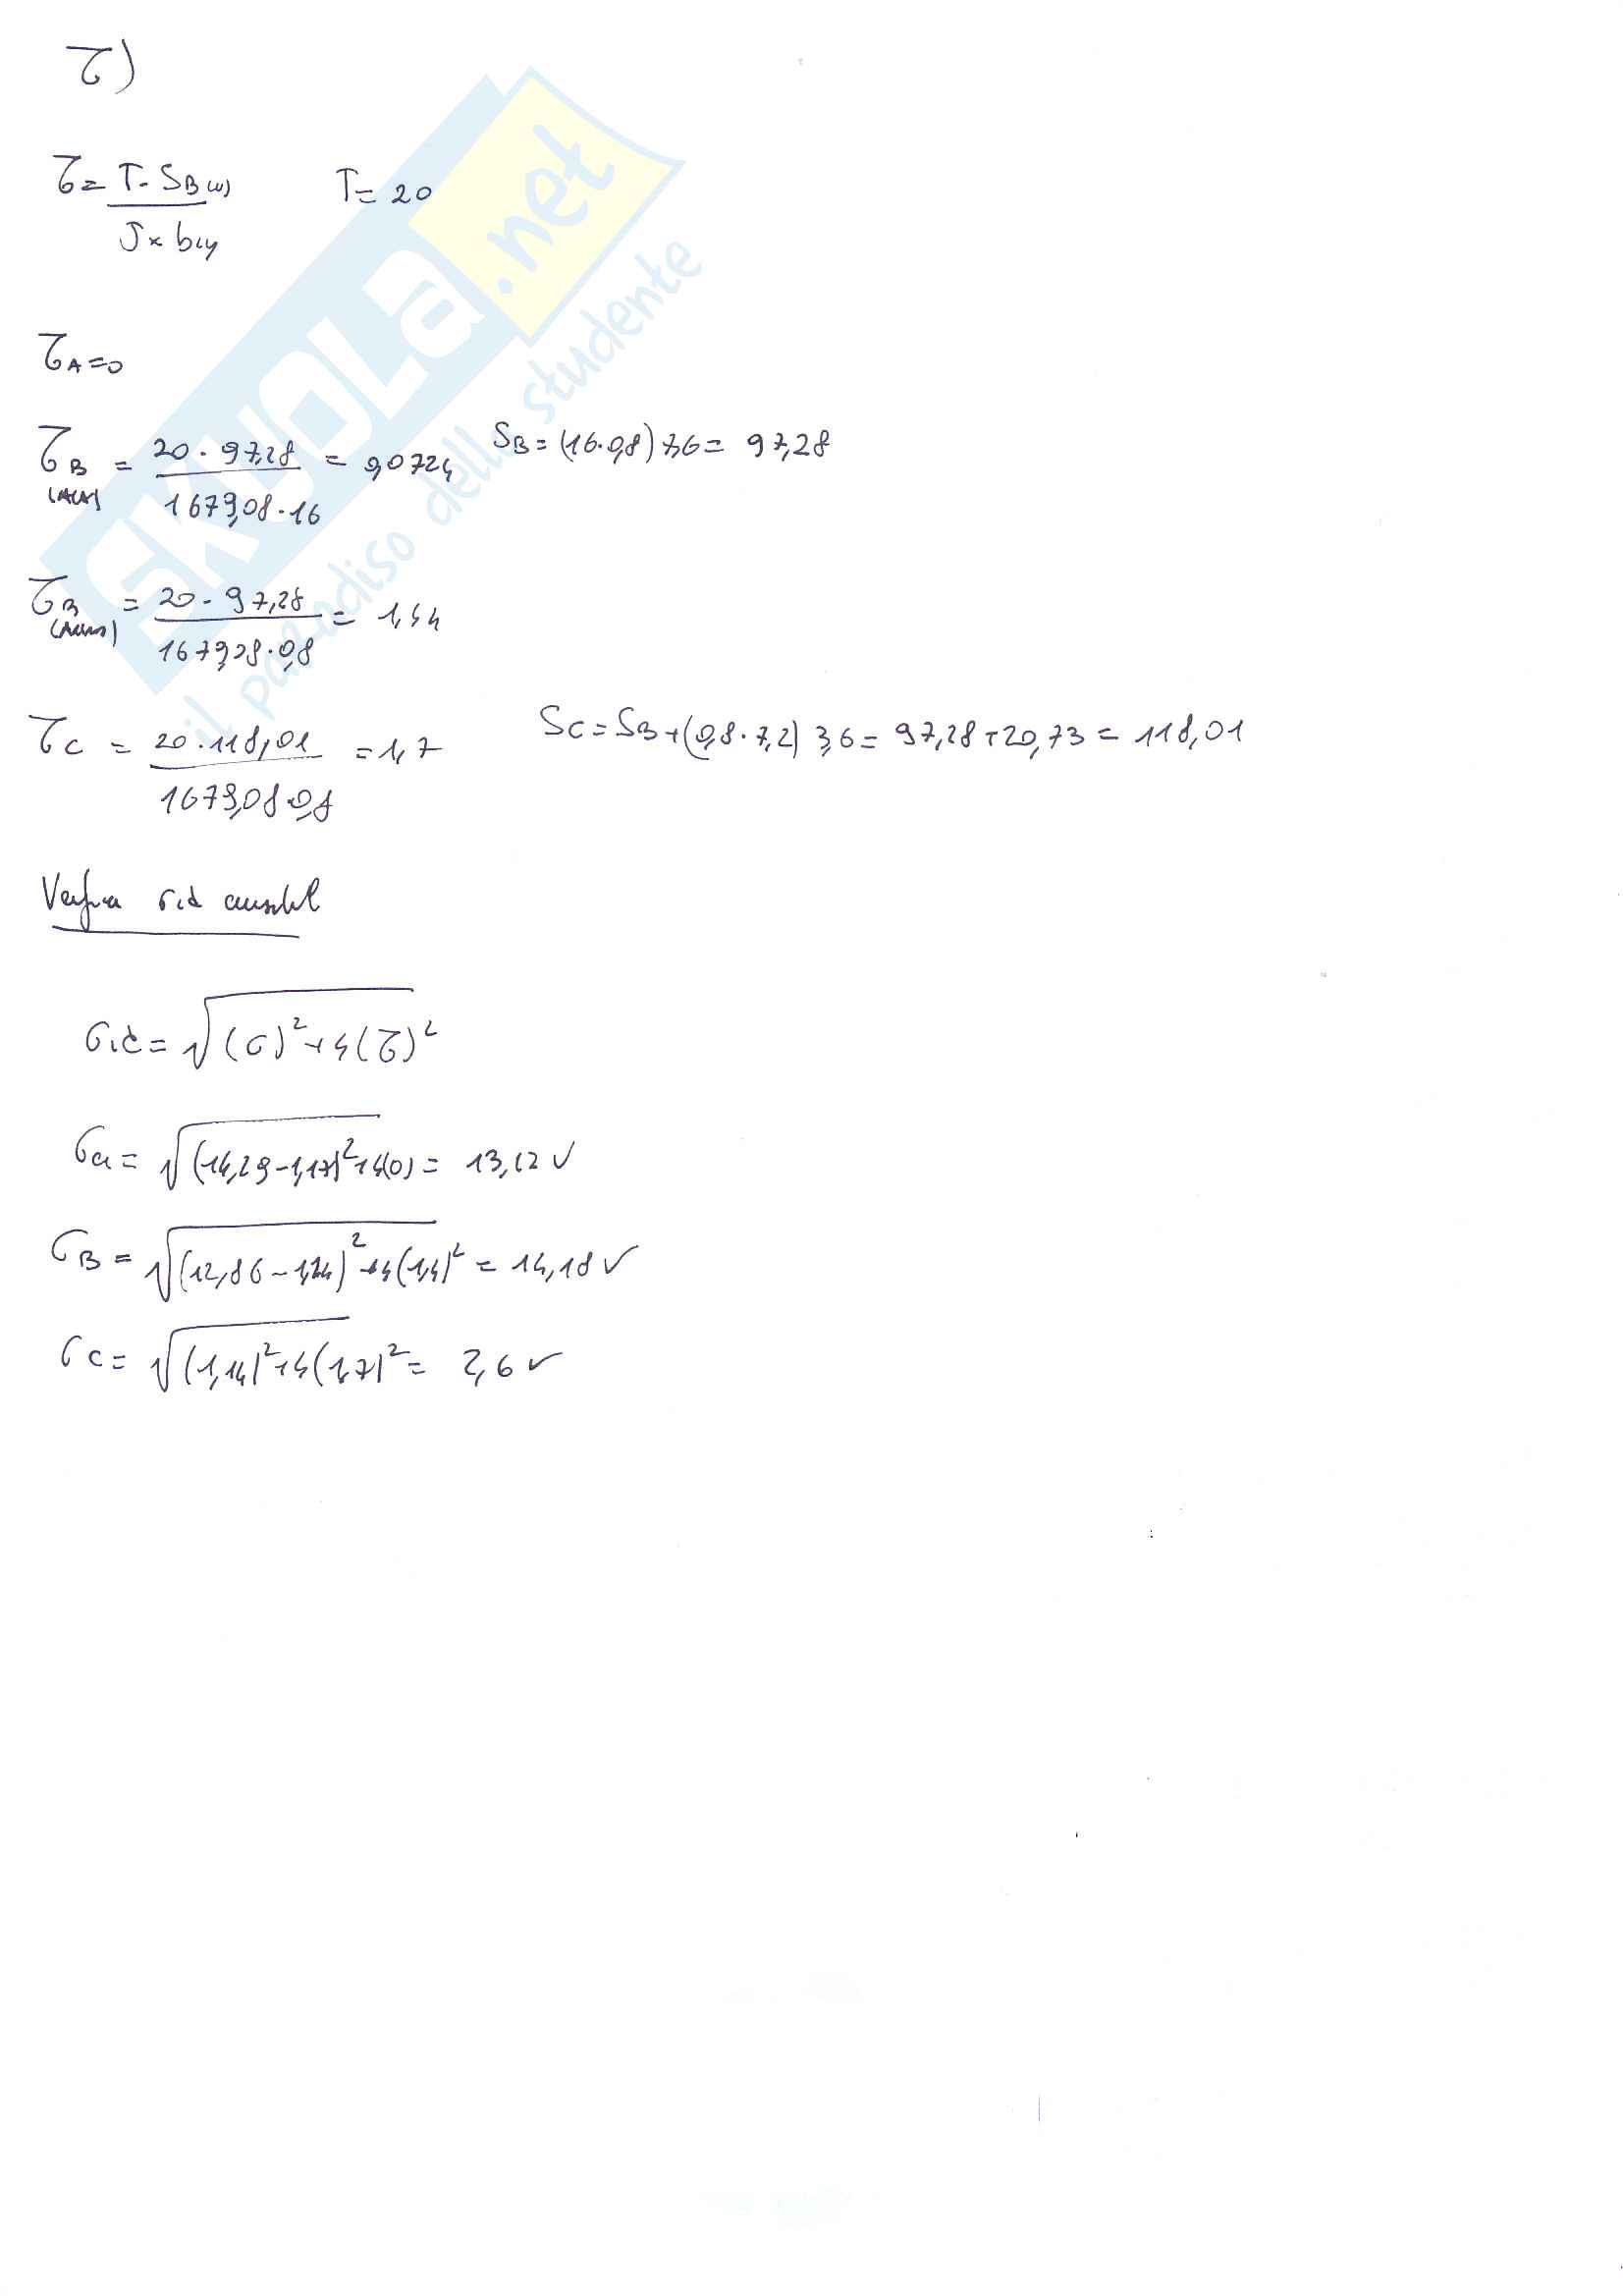 τ)
τ = T · SB(y) / Jx b(y)    T = 20
τA = 0
τB = 20 · 97,28 / 1679,08 · 16 = 0,0724    SB = (16 · 0,8) 7,6 = 97,28
τB = 20 · 97,28 / 1679,08 · 0,8 = 1,44
τC = 20 · 118,01 / 1679,08 · 0,8 = 1,7    SC = SB + (0,8 · 7,2) 3,6 = 97,28 + 20,73 = 118,01
σid
σid = √(σ)² + 4(τ)²
σa = √(14,29 - 1,17)² + 4(0) = 13,12 ✓
σB = √(12,86 - 1,24)² + 4(1,4)² = 14,18 ✓
σC = √(1,14)² + 4(1,7)² = 2,6 ✓
SKUOLA.net
il paradiso dello studente